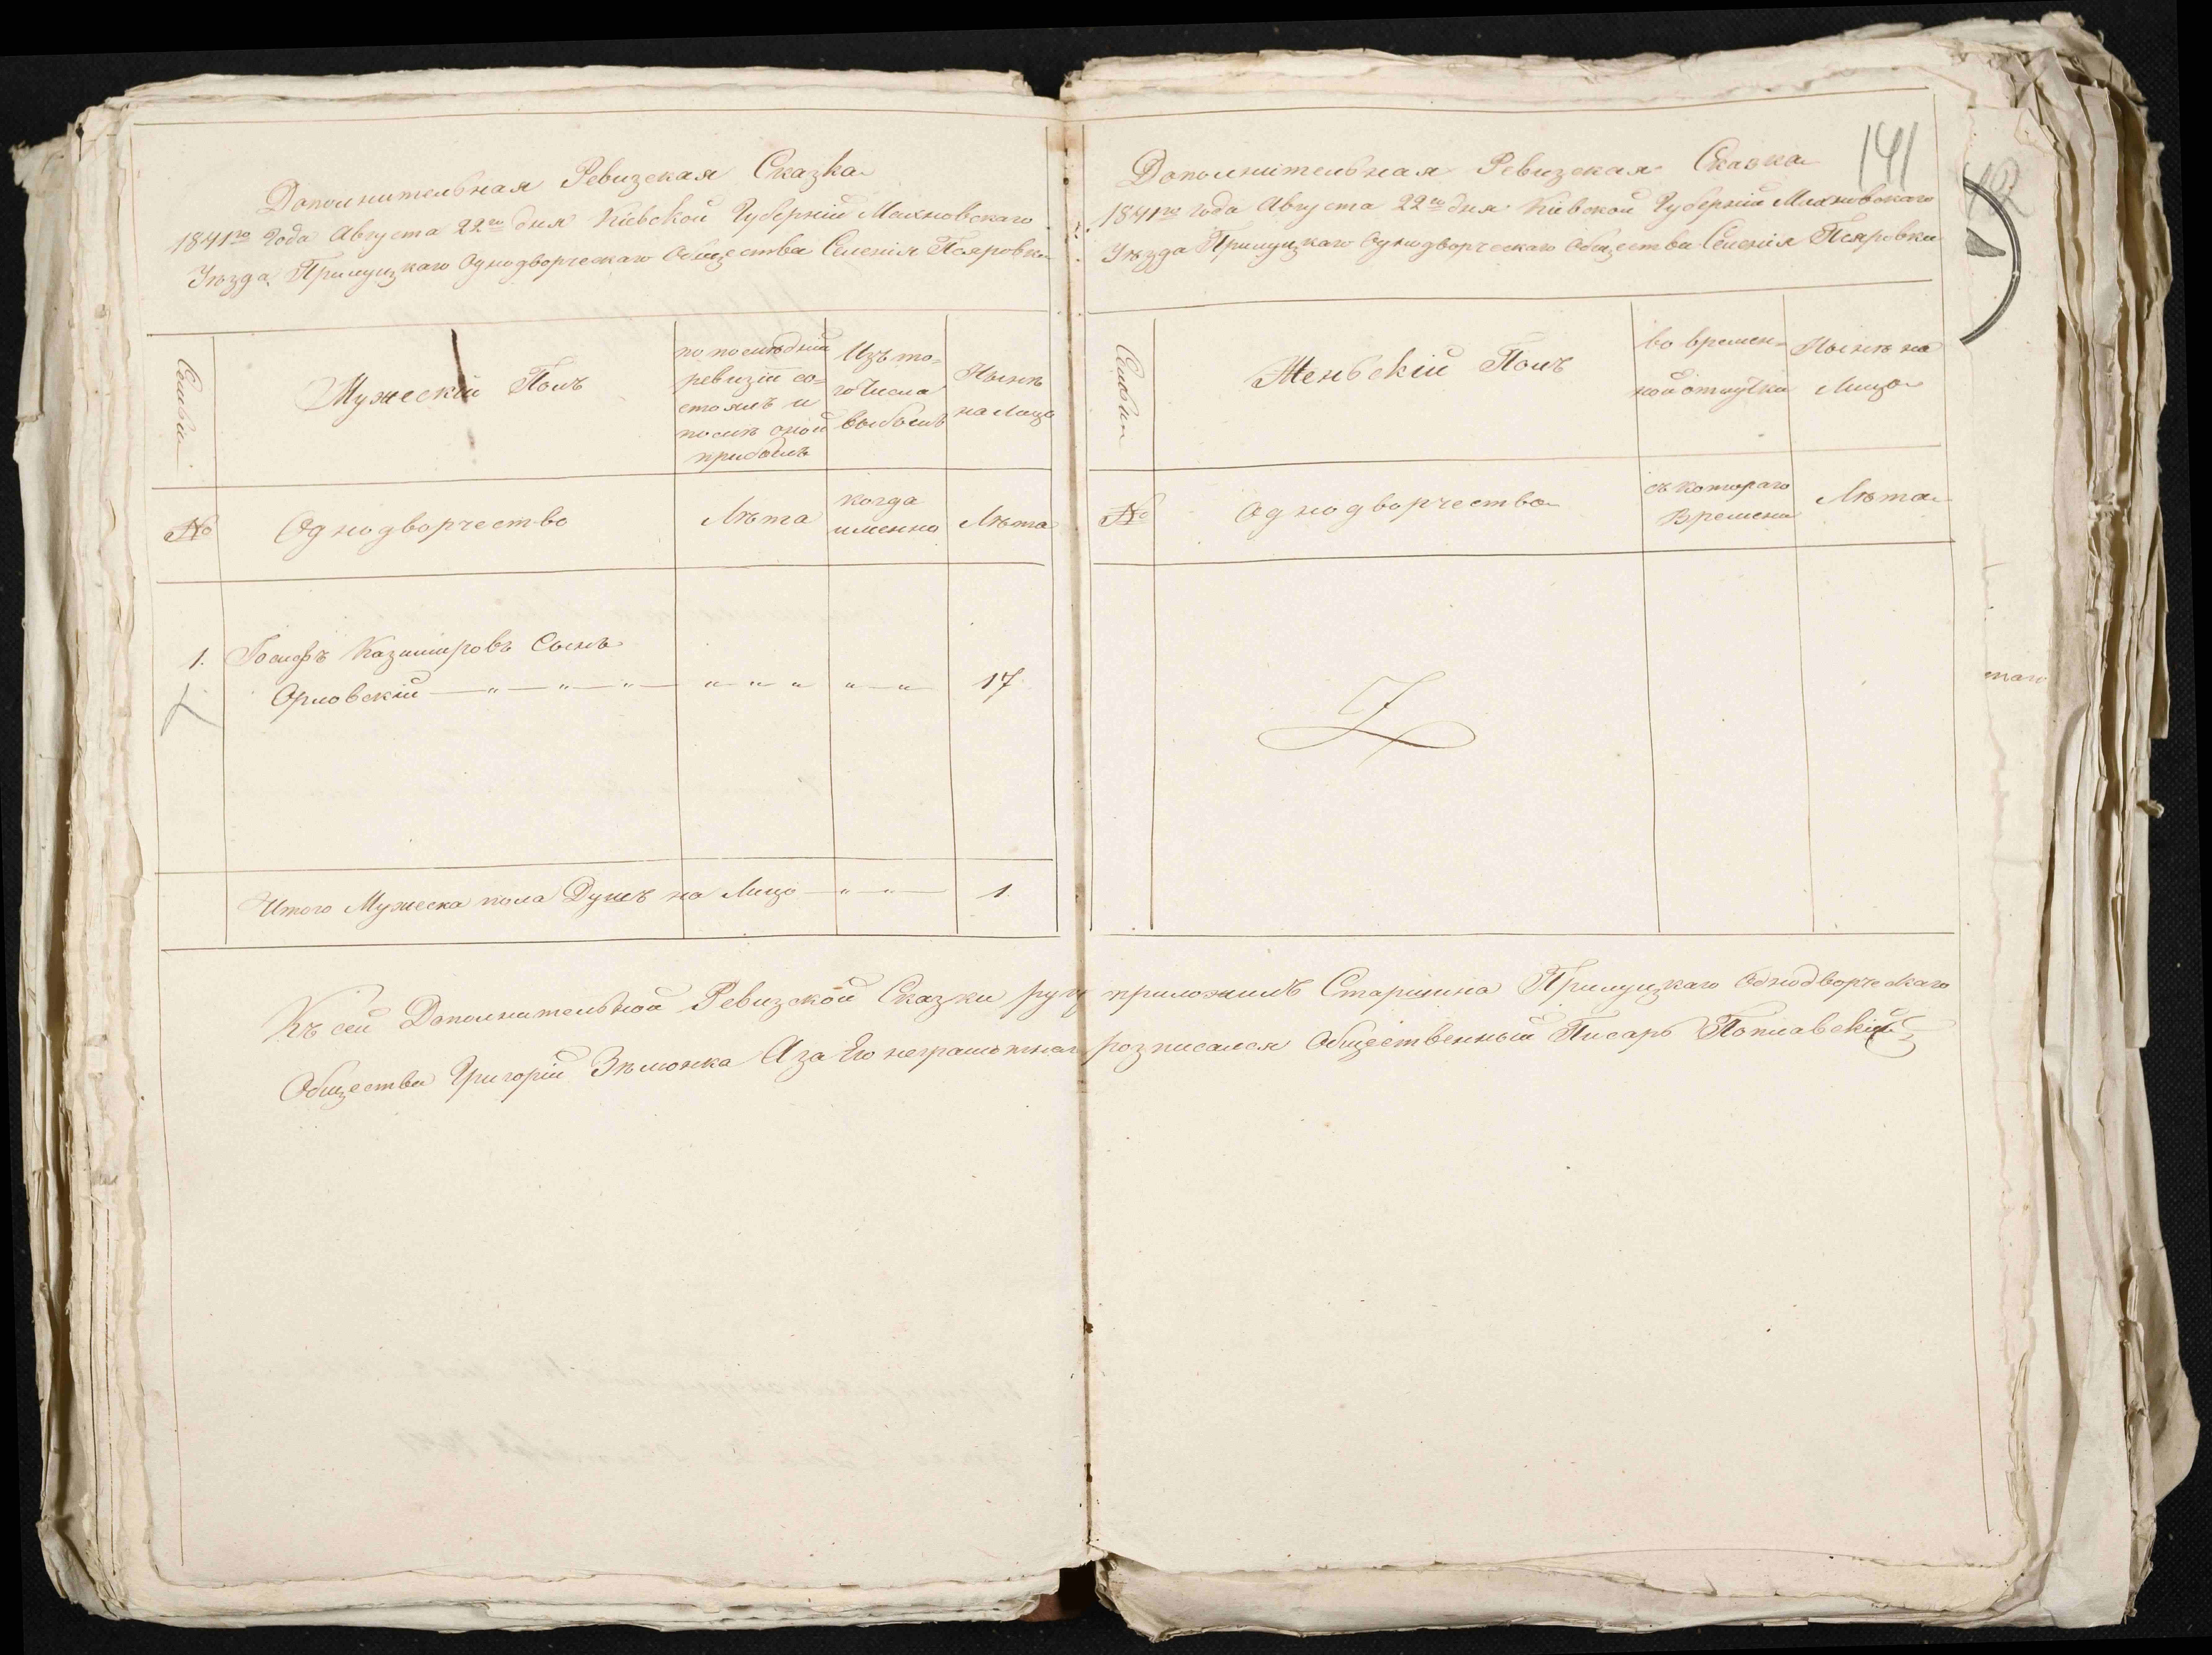 Дополнительная Ревизская Сказка
1841го Года Августа 22го дня Кіевской Губерніи Махновскаго
Уѣзда Прилуцкаго Однодворческаго Общества Селенія Псяровки
Семьи
Мужескій Полъ
по послѣдній
ревизіи со=
стоялъ и
послѣ оной
прибылъ
Изъ то=
го Числа
выбылъ
Нынѣ
на Лицо
№
Однодворчество
Лѣта
когда
именно
Лѣта
1.
Іосифъ Казимировъ Сынъ
Орловскій — " — " — " — " " " " — " — 17
Итого Мужеска пола Душъ на Лицо — " — " — 1
141
Дополнительная Ревизская Сказка
1841го года Августа 22го дня Кіевской Губерніи Махновскаго
Уѣзда Прилуцкаго Однодворческаго Общества Селенія Псяровки
Семьи
Женьскій Полъ
во времен=
ной отлучки
Нынѣ на
Лицо
№
Однодворчество
съ котораго
Времени
Лѣта
Къ сей Дополнительной Ревизской Сказки руку приложилъ Старшина Прилуцкаго Однодворческаго
Общества Григорій Зѣлюнка А за Его неграмотнаго розписался Общественный Писарь Поплавскій